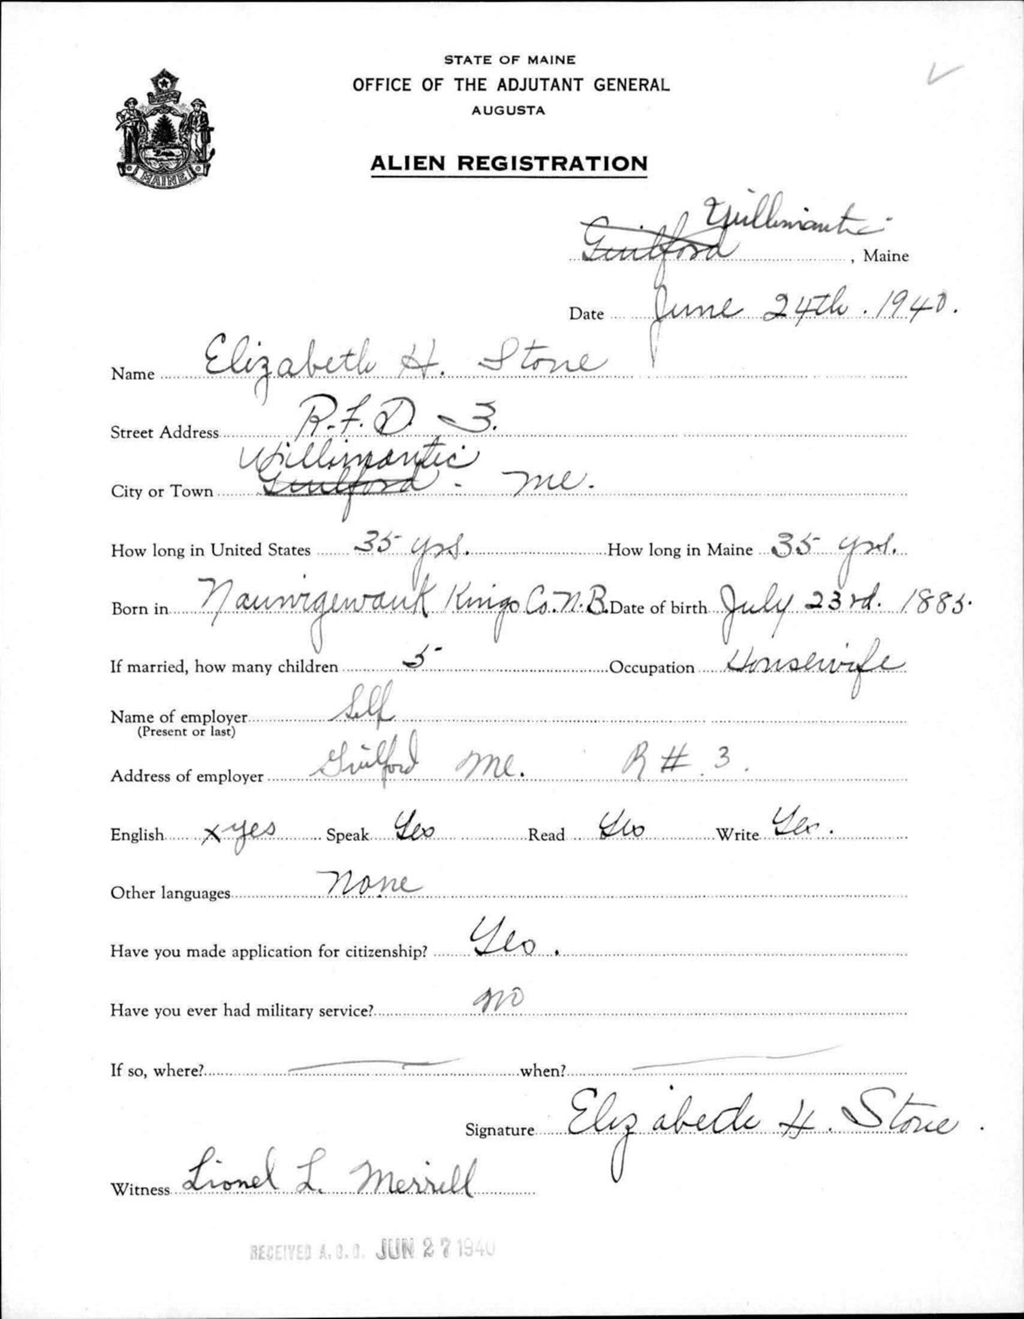 STATE OF MAINE
OFFICE OF THE ADJUTANT GENERAL
AUGUSTA
ALIEN REGISTRATION
MAINE
Willimantic
Guilford, Maine
Date June 24th. 1940.
Name Elizabeth H. Stone
Street Address R.F.D. 3.
Willimantic
City or Town Guilford. Me.
How long in United States 35 yrs. How long in Maine 35 yrs.
Born in Nauwigewauk Kings Co. N.B. Date of birth July 23rd. 1885.
If married, how many children 5 Occupation Housewife
Name of employer Self
(Present or last)
Address of employer Guilford Me. R # 3.
English x yes Speak Yes Read Yes Write Yes.
Other languages None
Have you made application for citizenship? Yes.
Have you ever had military service? no
If so, where? when?
Signature Elizabeth H. Stone.
Witness Lionel L. Merrill
RECEIVED A.G.O. JUN 27 1940